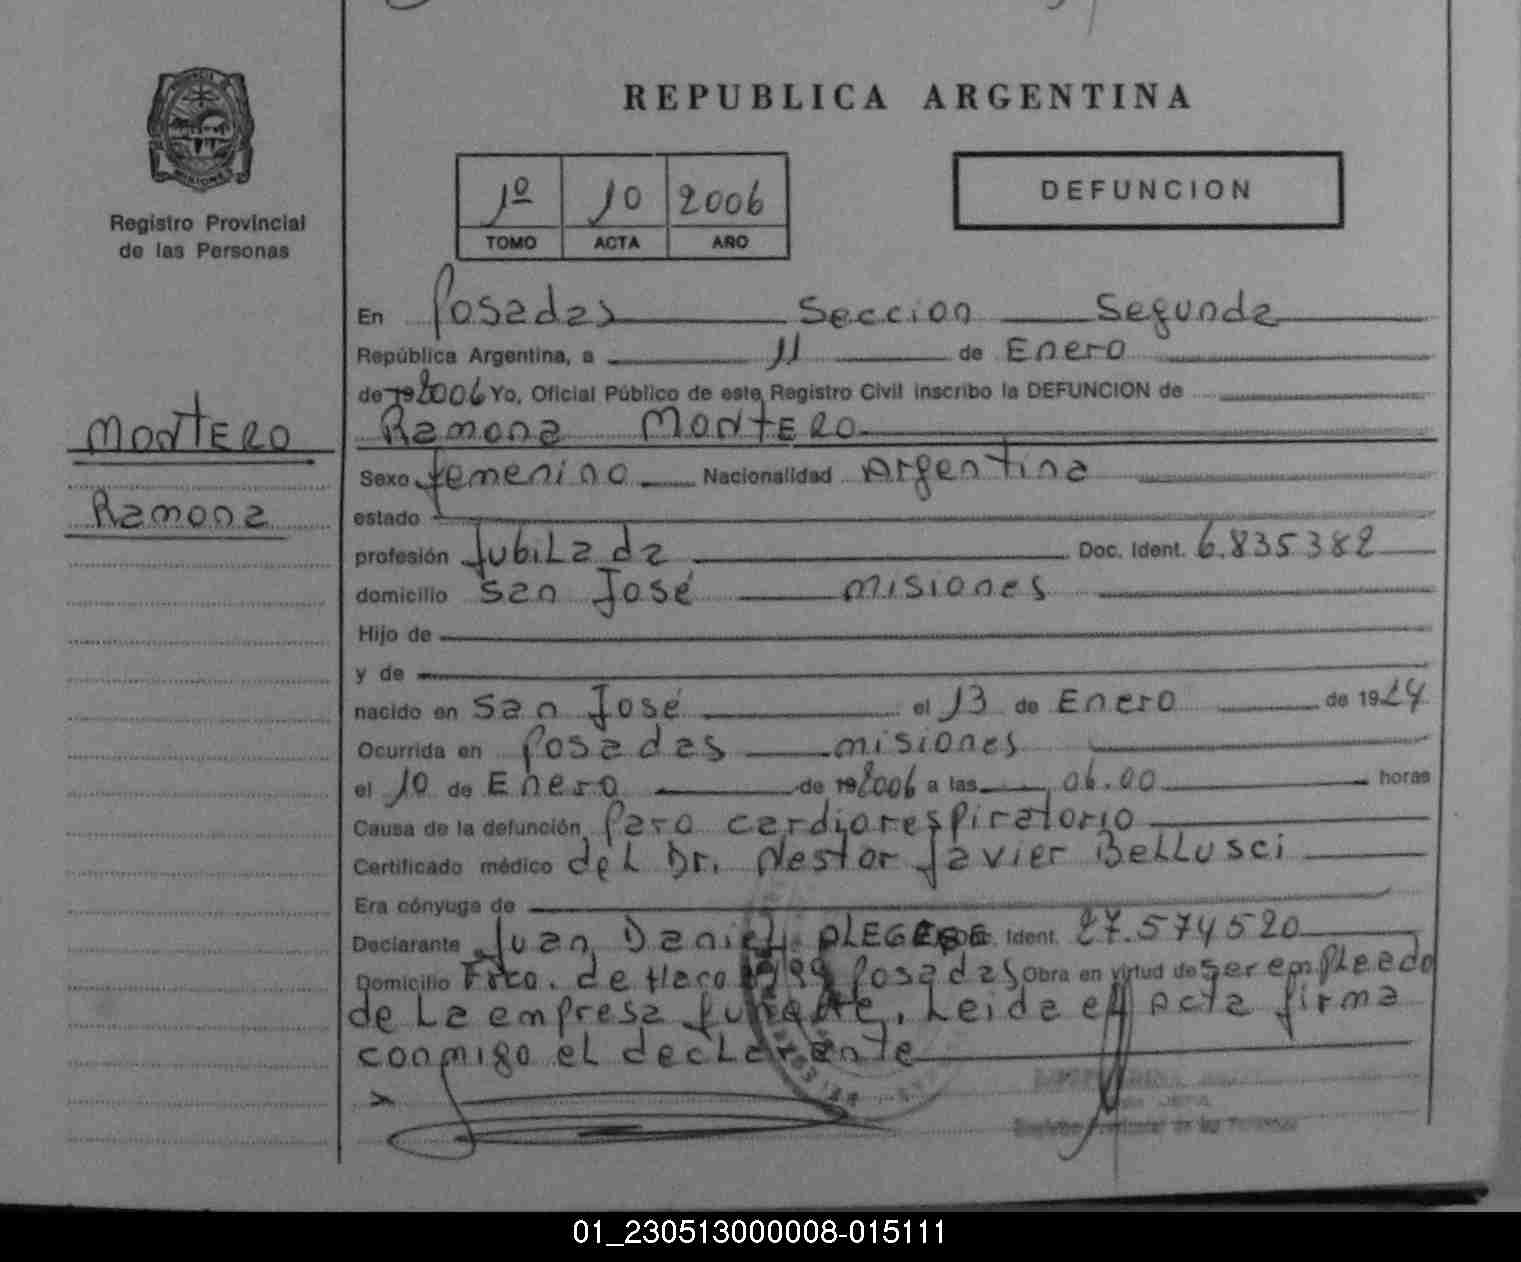 REPUBLICA ARGENTINA
Registro Provincial
de las Personas
1º 10 2006
TOMO ACTA AÑO
DEFUNCION
MONTERO
Ramona
En Posadas Seccion Segunda
República Argentina, a 11 de Enero
de 19 2006 Yo, Oficial Público de este Registro Civil inscribo la DEFUNCION de
Ramona MONTERO
Sexo femenino Nacionalidad Argentina
estado
profesión Jubilada Doc. Ident. 6.835382
domicilio San José misiones
Hijo de
y de
nacido en San José el 13 de Enero de 1924
Ocurrida en Posadas misiones
el 10 de Enero de 19 2006 a las 06.00 horas
Causa de la defunción Paro cardiorespiratorio
Certificado médico del Dr. Nestor Javier Bellusci
Era cónyuge de
Declarante Juan Daniel Ident. 27.574520
Domicilio Fco. de Haro Posadas Obra en virtud de ser empleado
de la empresa funebre. Leida el Acta firma
conmigo el declarante
Registro Provincial de las Personas
01_230513000008-015111